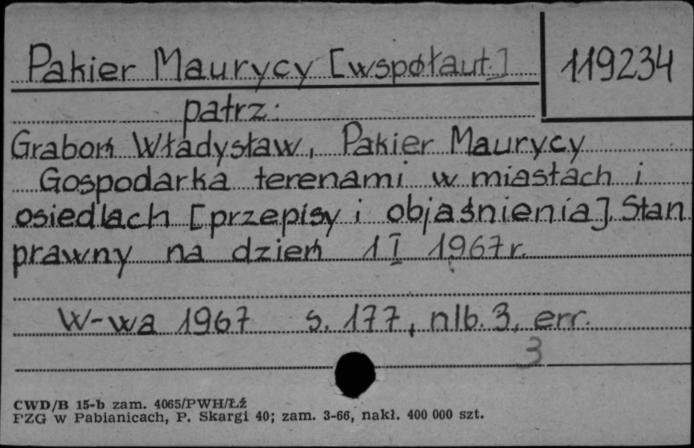 Pakier Maurycy [współaut.]
119234
patrz:
Graboń Władysław, Pakier Maurycy
Gospodarka terenami w miastach i
osiedlach [przepisy i objaśnienia]. Stan
prawny na dzień 1 I 1967 r.
W-wa 1967 s. 177, nlb. 3, err.
3
CWD/B 15-b zam. 4065/PWH/Łź
PZG w Pabianicach, P. Skargi 40; zam. 3-66, nakł. 400 000 szt.